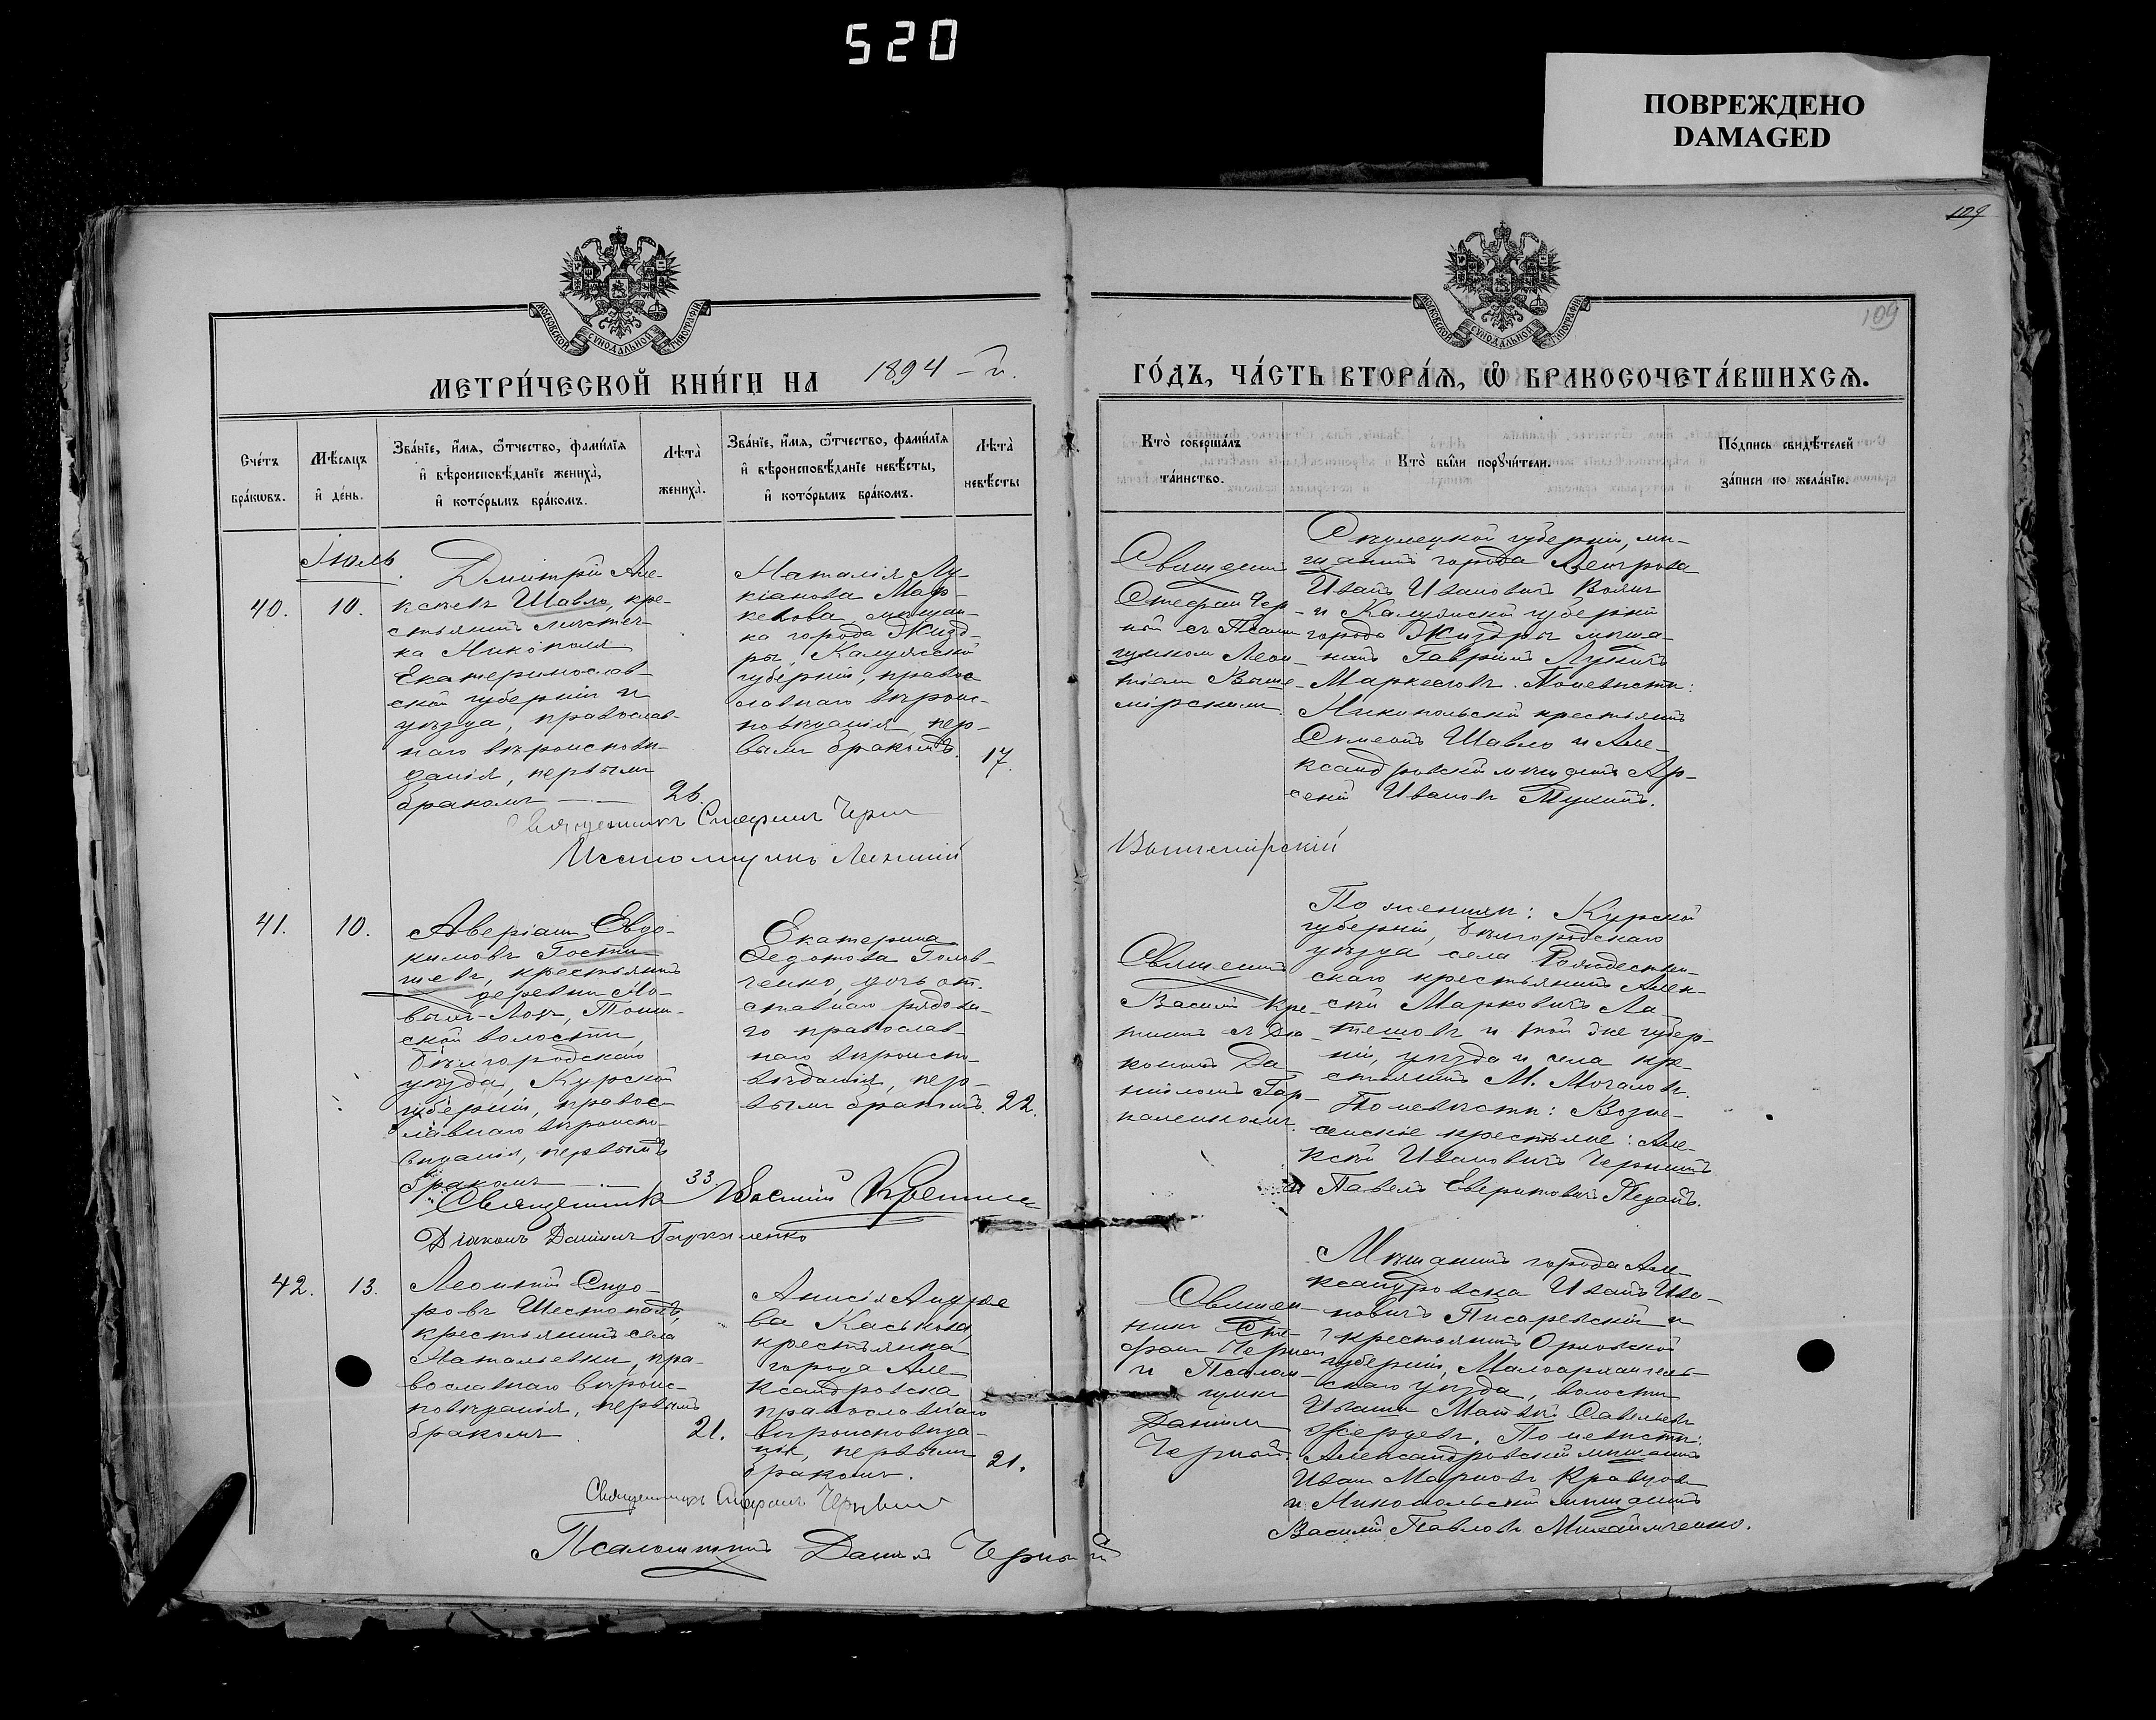 520
ПОВРЕЖДЕНО
DAMAGED
109
109
МОСКОВСКОЙ СѴНОДАЛЬНОЙ ТИПОГРАФІИ
МОСКОВСКОЙ СѴНОДАЛЬНОЙ ТИПОГРАФІИ
МЕТРИ́ЧЕСКОЙ КНИ́ГИ НА 1894-й.
ГО́ДЪ, ЧА́СТЬ ВТОРА́Я, Ѽ БРАКОСОЧЕТА́ВШИХСЯ.
Сче́тъ
бра́кωвъ.
Мѣ́сяцъ
и҆ де́нь.
Зва́нїе, и҆́мя, ѻ҆́тчество, фами́лїя
и҆ вѣроисповѣ́данїе жениха̀,
и҆ кото́рымъ бра́комъ.
Лѣ́та
жениха̀.
Зва́нїе, и҆́мя, ѻ҆́тчество, фами́лїя
и҆ вѣроисповѣ́данїе невѣ́сты,
и҆ кото́рымъ бра́комъ.
Лѣ́та
невѣ́сты
Кто̀ соверша́лъ
та́инство.
Кто̀ бы́ли порꙋчи́тели.
По́дпись свидѣ́телей
за́писи по жела́нїю.
Іюль.
40.
10.
Дмитрій Але-
ксѣевъ Шавло, кре-
стьянинъ мѣстеч-
ка Никополя
Екатеринослав-
ской губерніи и
уѣзда, православ-
наго вѣроисповѣ-
данія, первымъ
бракомъ
26.
Наталія Лу-
кіанова Мар-
келова, мѣщан-
ка города Жизд-
ры, Калужской
губерніи, правос-
лавнаго вѣроис-
повѣданія, пер-
вымъ бракомъ.
17.
Священ
Стефан Чер-
ной съ Псалом
щикомъ Леон-
тіем Выше-
мірскимъ.
губерніи, мѣ-
щанинъ города
Иванъ Ивановичъ
и Калужской губерніи
города Жиздры мѣща-
нинъ Гавріилъ Лукичъ
Маркеловъ. По невѣсти:
Никопольскій крестьянинъ
Симеонъ Шавло и Але-
ксандровскій мѣщанинъ Ар-
сеній Ивановъ
Священникъ Стефанъ Черн
Псаломщикъ Леонтий
Вышемірскій
41.
10.
Аверіанъ Евдо-
кимовъ Гости-
щевъ, крестьянинъ
деревни
ской волости,
Бѣлгородскаго
уѣзда, Курской
губерніи, правос-
лавнаго вѣроиспо-
вѣданія, первымъ
бракомъ
33.
Екатерина
Федотова Голов-
ченко, дочь от-
ставнаго рядова-
го православ-
наго вѣроиспо-
вѣданія, пер-
вымъ бракомъ.
22.
Священ
Василій Кре-
съ Діа-
кономъ Да-
ніиломъ Гар-
каленкомъ.
По жениху: Курской
губерніи, Бѣлгородскаго
уѣзда села Рождествен-
скаго крестьянинъ Алек-
сѣй Марковичъ Ла-
и той же губер-
ніи, уѣзда и села кре-
стьянинъ М. Мочаловъ.
По невѣсти: Возне-
сенскіе крестьяне: Але-
ксѣй Ивановичъ
и Павелъ
Священникъ Василій
Діаконъ Даніилъ Гаркаленко
42.
13.
Леонтій Сидо-
ровъ Шестопалъ,
крестьянинъ села
Натальевки, пра-
вославнаго вѣроис-
повѣданія, первымъ
бракомъ
21.
Анисія Андрее
ва Каськова,
крестьянка
города Але
ксандровска
православнаго
вѣроисповѣда-
нія, первымъ
бракомъ.
21.
Священ-
никъ Сте-
фанъ Черной
и Псалом-
щикъ
Даніилъ
Черной.
Мѣщанинъ города Але-
ксандровска Иванъ Ива-
новичъ Писаревскій и
крестьянинъ Орловской
губерніи, Малоархангель-
скаго уѣзда, волости
Савельевъ
По невѣсти:
Александровскій мѣщанинъ
Иванъ Марковъ Кравцовъ
и Никопольскій мѣщанинъ
Василій Павловъ Михайличенко.
Священникъ Стефанъ Черный
Псаломщикъ Даніилъ Черный